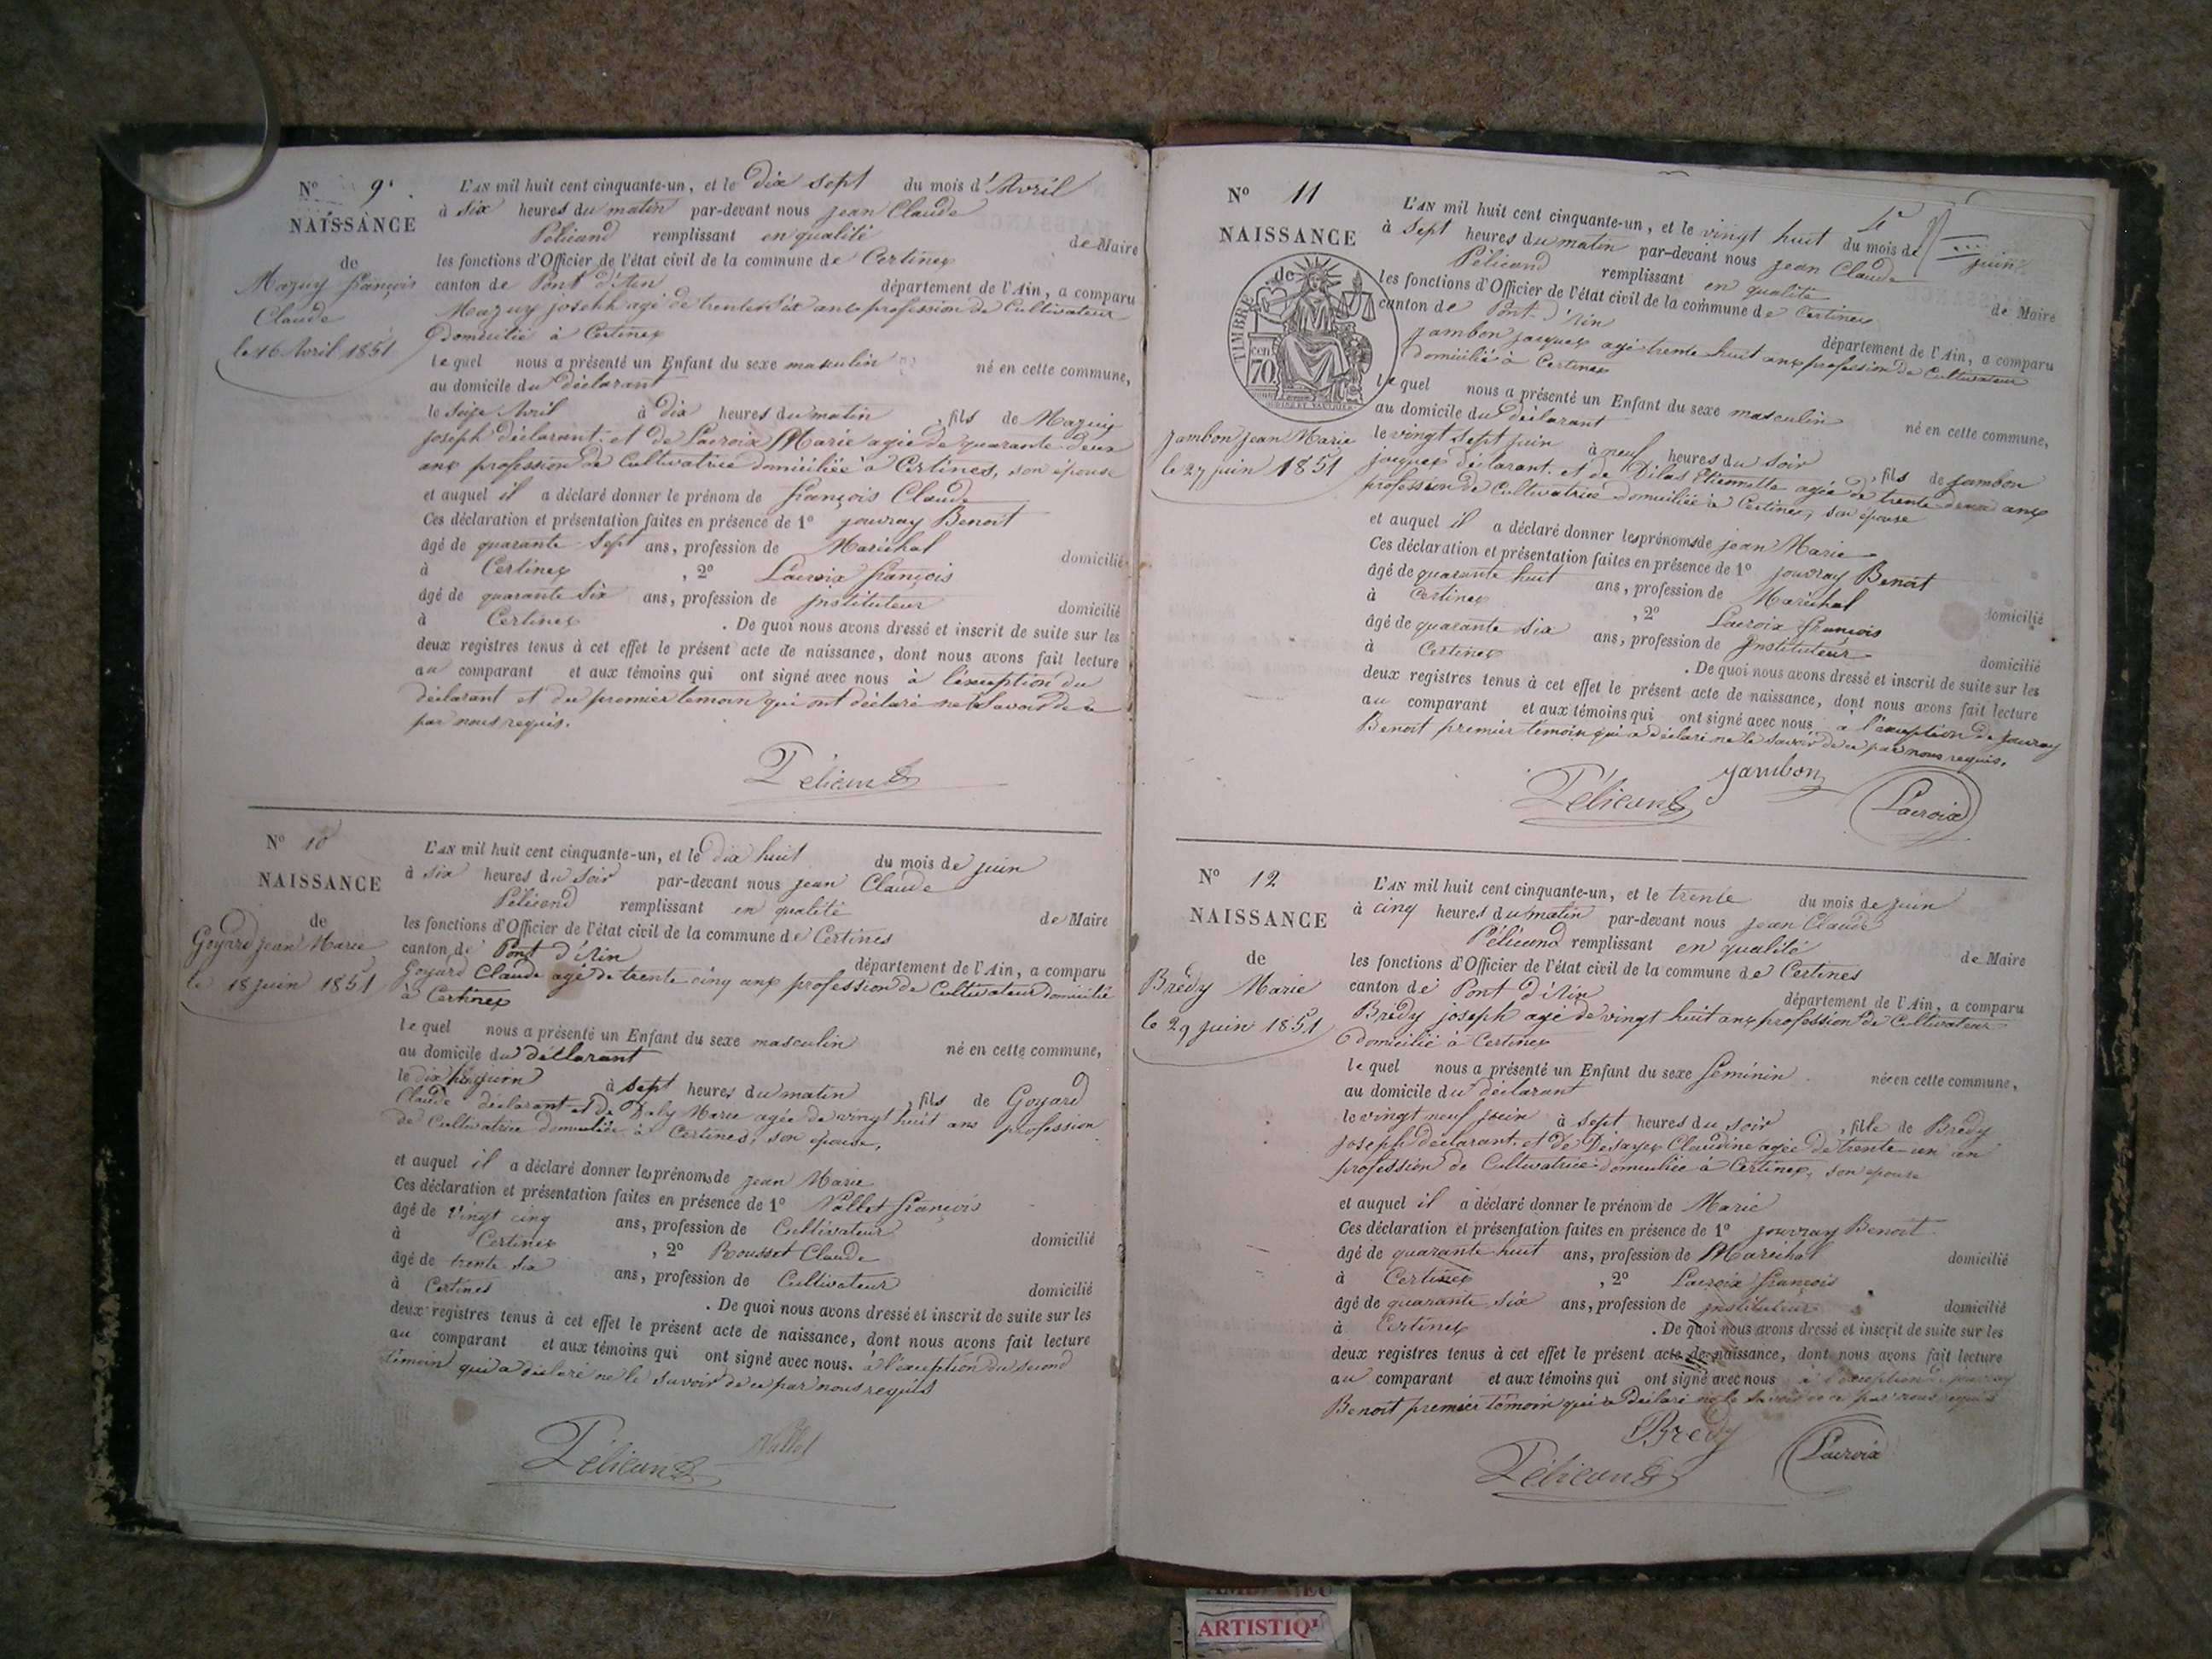 Nº 9.
NAISSANCE
de
Mazuy françois
Claude
le 16 Avril 1851
L'AN mil huit cent cinquante-un, et le dix sept du mois d'Avril
à six heures du matin par-devant nous jean Claude
Pélicand remplissant en qualité de Maire
les fonctions d'Officier de l'état civil de la commune de Certines
canton de Pont d'Ain département de l'Ain, a comparu
Mazuy joseph agé de trente six ans profession de Cultivateur
Domicilié à Certines
lequel nous a présenté un Enfant du sexe masculin né en cette commune,
au domicile du déclarant
le seize Avril à dix heures du matin, fils de Mazuy
joseph déclarant et de Lacroix Marie agée de quarante deux
ans profession de Cultivatrice domiciliée à Certines, son épouse
et auquel il a déclaré donner le prénom de françois Claude
Ces déclaration et présentation faites en présence de 1º jouvray Benoit
âgé de quarante sept ans, profession de Maréchal domicilié
à Certines, 2º Lacroix françois
âgé de quarante six ans, profession de jnstituteur domicilié
à Certines. De quoi nous avons dressé et inscrit de suite sur les
deux registres tenus à cet effet le présent acte de naissance, dont nous avons fait lecture
au comparant et aux témoins qui ont signé avec nous à l'exception du
déclarant et du premier temoin qui ont déclaré ne le savoir de ce
par nous requis.
Pélicand
Nº 10
NAISSANCE
de
Goyard jean Marie
le 18 juin 1851
L'AN mil huit cent cinquante-un, et le dix huit du mois de juin
à six heures du soir par-devant nous jean Claude
Pélicand remplissant en qualité de Maire
les fonctions d'Officier de l'état civil de la commune de Certines
canton de Pont d'Ain département de l'Ain, a comparu
Goyard Claude agé de trente cinq ans profession de Cultivateur domicilié
à Certines
lequel nous a présenté un Enfant du sexe masculin né en cette commune,
au domicile du déclarant
le dix huit juin à sept heures du matin, fils de Goyard
Claude déclarant et de Marie agée de vingt huit ans profession
de Cultivatrice domiciliée à Certines, son épouse,
et auquel il a déclaré donner les prénoms de jean Marie
Ces déclaration et présentation faites en présence de 1º Vallet françois
âgé de vingt cinq ans, profession de Cultivateur domicilié
à Certines, 2º Rousset Claude
âgé de trente six ans, profession de Cultivateur domicilié
à Certines. De quoi nous avons dressé et inscrit de suite sur les
deux registres tenus à cet effet le présent acte de naissance, dont nous avons fait lecture
au comparant et aux témoins qui ont signé avec nous. à l'exception du second
témoin qui a déclaré ne le savoir de ce par nous requis
Pélicand Vallet
Nº 11
NAISSANCE
de
TIMBRE
cen
70
jambon jean Marie
le 27 juin 1851
L'AN mil huit cent cinquante-un, et le vingt huit du mois de juin
à sept heures du matin par-devant nous jean Claude
Pélicand remplissant en qualité de Maire
les fonctions d'Officier de l'état civil de la commune de Certines
canton de Pont d'Ain département de l'Ain, a comparu
jambon jacques agé trente huit ans profession de Cultivateur
domicilié à Certines
lequel nous a présenté un Enfant du sexe masculin né en cette commune,
au domicile du déclarant
le vingt sept juin à neuf heures du soir, fils de jambon
jacques déclarant et de Dilas Etiennette agée de trente deux ans
profession de Cultivatrice domiciliée à Certines, son épouse
et auquel il a déclaré donner les prénoms de jean Marie
Ces déclaration et présentation faites en présence de 1º jouvray Benoit
âgé de quarante huit ans, profession de Maréchal domicilié
à Certines, 2º Lacroix françois
âgé de quarante six ans, profession de jnstituteur domicilié
à Certines. De quoi nous avons dressé et inscrit de suite sur les
deux registres tenus à cet effet le présent acte de naissance, dont nous avons fait lecture
au comparant et aux témoins qui ont signé avec nous à l'exception de jouvray
Benoit premier temoin qui a déclaré ne le savoir de ce par nous requis.
Pélicand jambon Lacroix
Nº 12
NAISSANCE
de
Brédy Marie
le 29 juin 1851
L'AN mil huit cent cinquante-un, et le trente du mois de juin
à cinq heures du matin par-devant nous jean Claude
Pélicand remplissant en qualité de Maire
les fonctions d'Officier de l'état civil de la commune de Certines
canton de Pont d'Ain département de l'Ain, a comparu
Brédy joseph agé de vingt huit ans profession de Cultivateur
domicilié à Certines
lequel nous a présenté un Enfant du sexe féminin née en cette commune,
au domicile du déclarant
le vingt neuf juin à sept heures du soir, fille de Brédy
joseph déclarant et de Claudine agée de trente un an
profession de Cultivatrice domiciliée à Certines, son épouse
et auquel il a déclaré donner le prénom de Marie
Ces déclaration et présentation faites en présence de 1º jouvray Benoit
âgé de quarante huit ans, profession de Maréchal domicilié
à Certines, 2º Lacroix françois
âgé de quarante six ans, profession de jnstituteur domicilié
à Certines. De quoi nous avons dressé et inscrit de suite sur les
deux registres tenus à cet effet le présent acte de naissance, dont nous avons fait lecture
au comparant et aux témoins qui ont signé avec nous à l'exception de jouvray
Benoit premier témoin qui a déclaré ne le savoir de ce par nous requis
Brédy
Pélicand Lacroix
ARTISTIQ